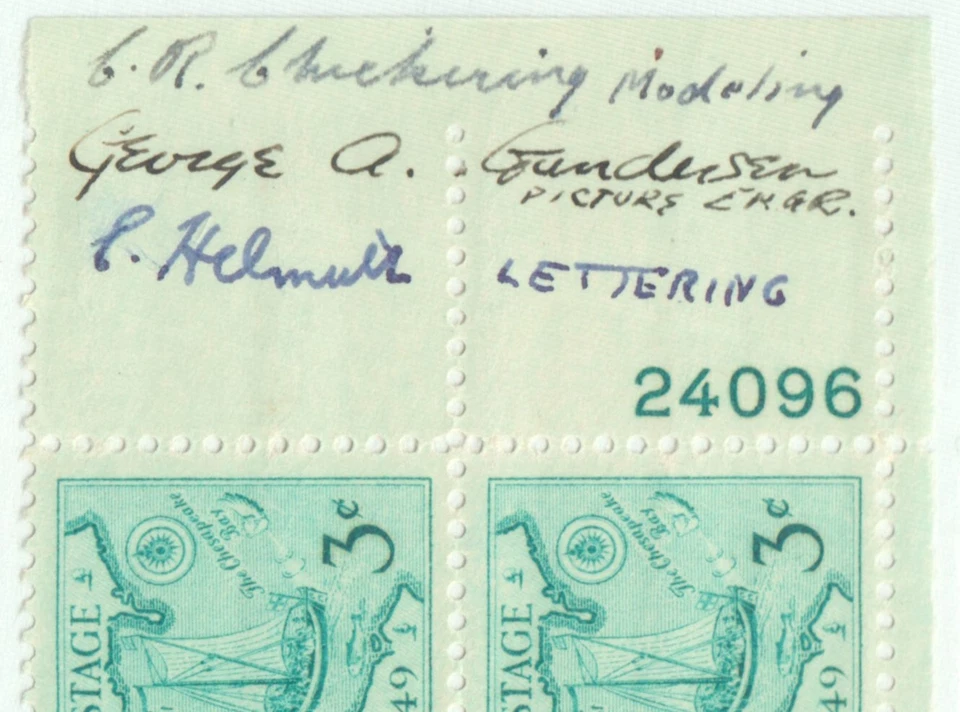 C. R. Chickering Modeling
George A. Gundersen
PICTURE ENGR.
C. Helmuth LETTERING
24096
3¢
The Chesapeake
Bay
STAGE
49
3¢
The Chesapeake
Bay
STAGE
49